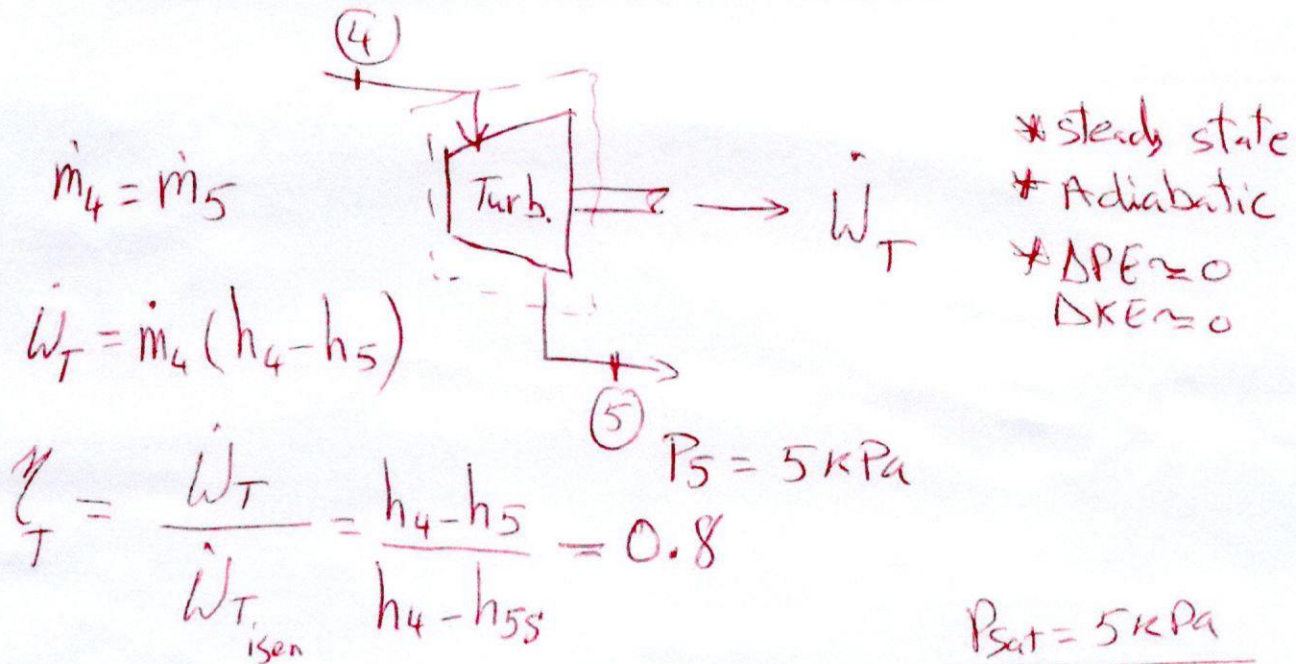 ④
ṁ₄ = ṁ₅
Turb.
Ẇ_T
* steady state
* Adiabatic
* ΔPE ≈ 0
ΔKE ≈ 0
Ẇ_T = ṁ₄ (h₄ - h₅)
⑤
P₅ = 5 kPa
η_T = Ẇ_T / Ẇ_T isen = (h₄ - h₅) / (h₄ - h₅s) = 0.8
Psat = 5 kPa